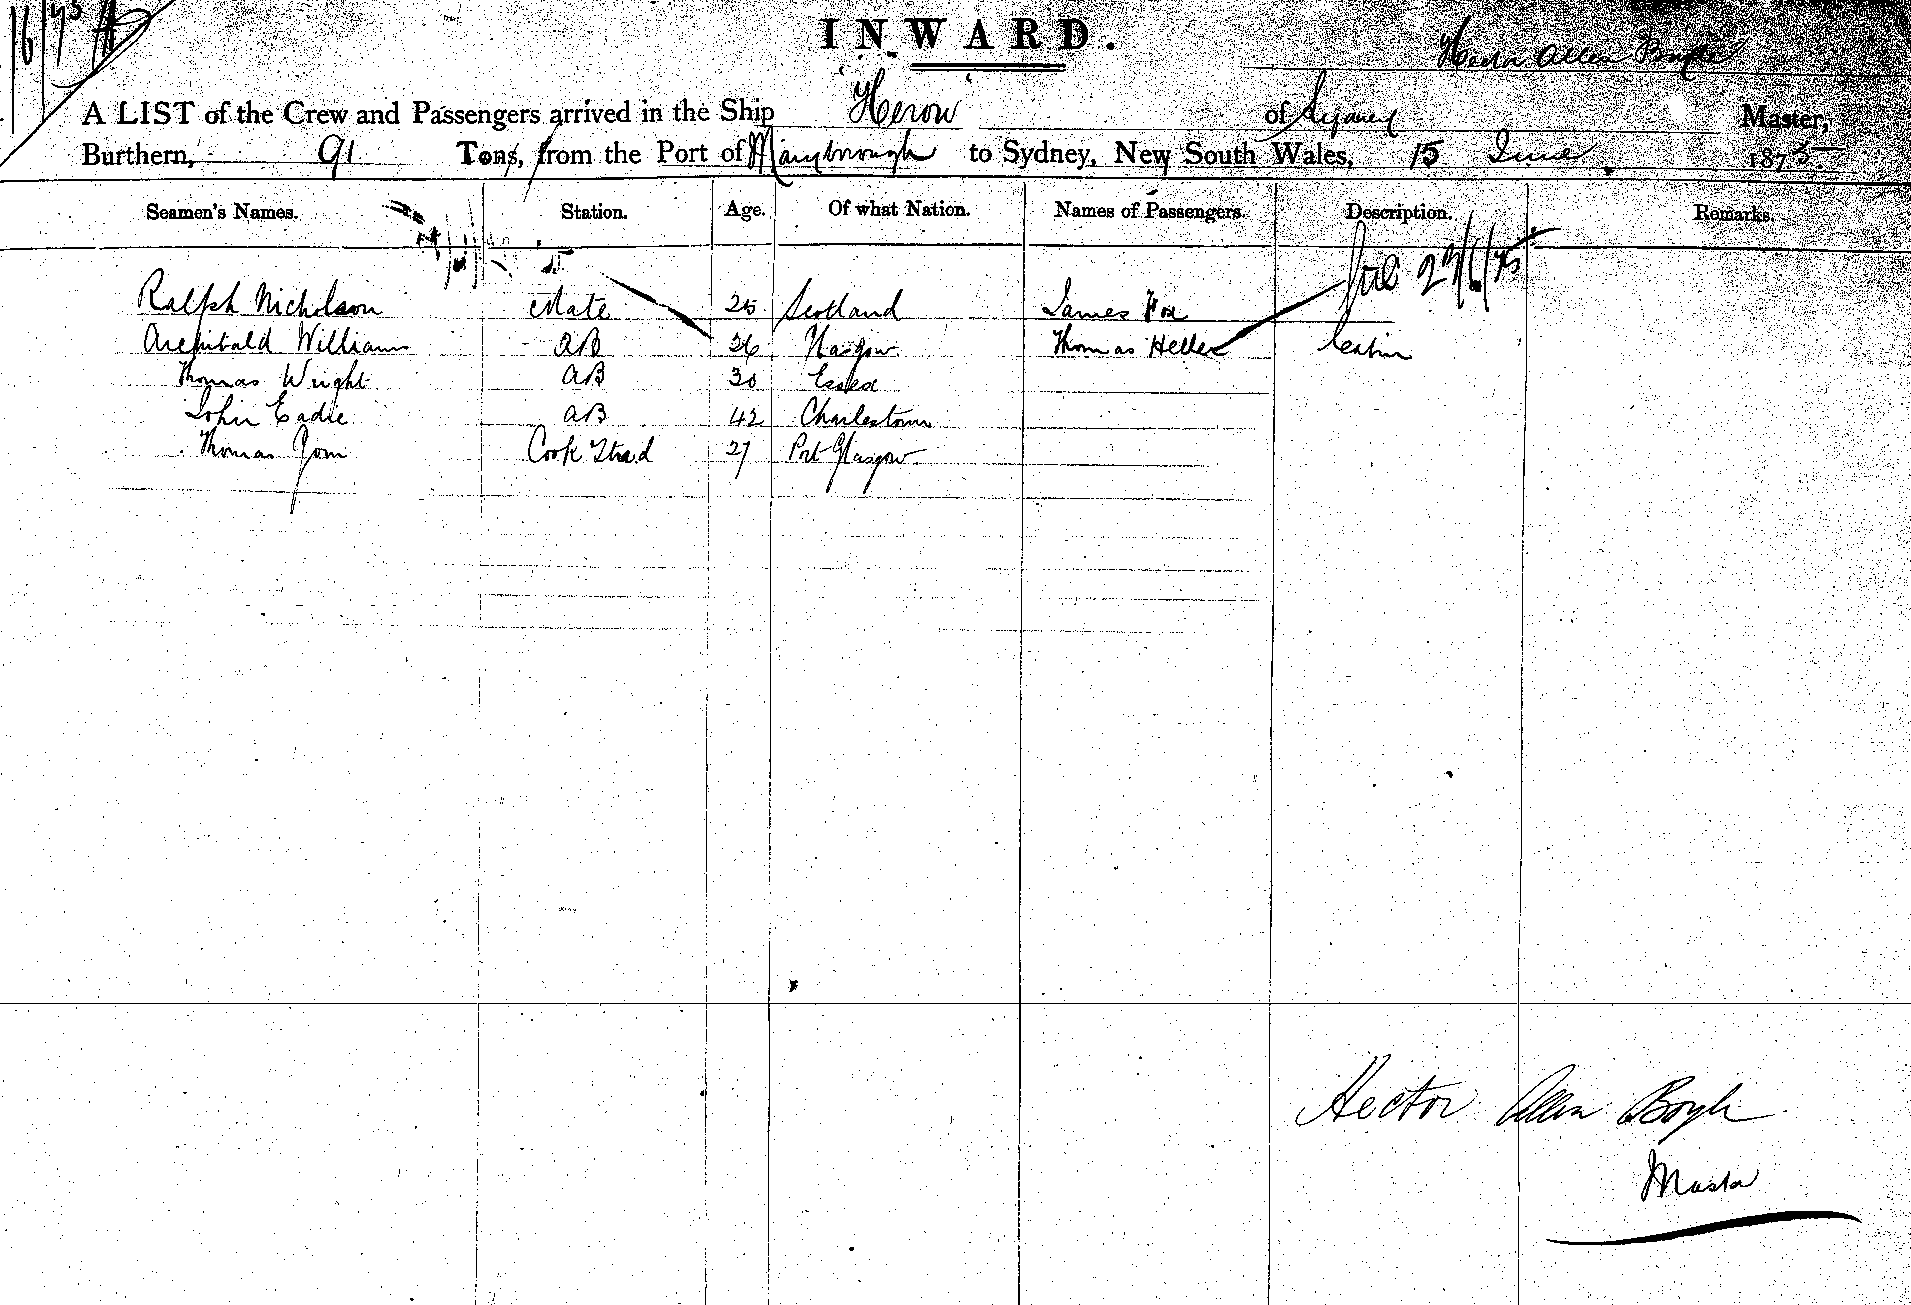 INWARD.
Hector Allen Boyle
A LIST of the Crew and Passengers arrived in the Ship Heron of Sydney Master,
Burthern, 91 Tons, from the Port of Maryborough to Sydney, New South Wales, 15 June 1875
Seamen's Names. Station. Age. Of what Nation. Names of Passengers. Description. Remarks.
Ralph Nicholson Mate 25 Scotland James Fox
Archibald Williams AB 26 Glasgow Thomas Heller Cabin
Thomas Wright AB 30 Essex
John Eadie AB 42 Charlestown
Thomas Cook & Stwd 27 Port Glasgow
Hector Allen Boyle
Master